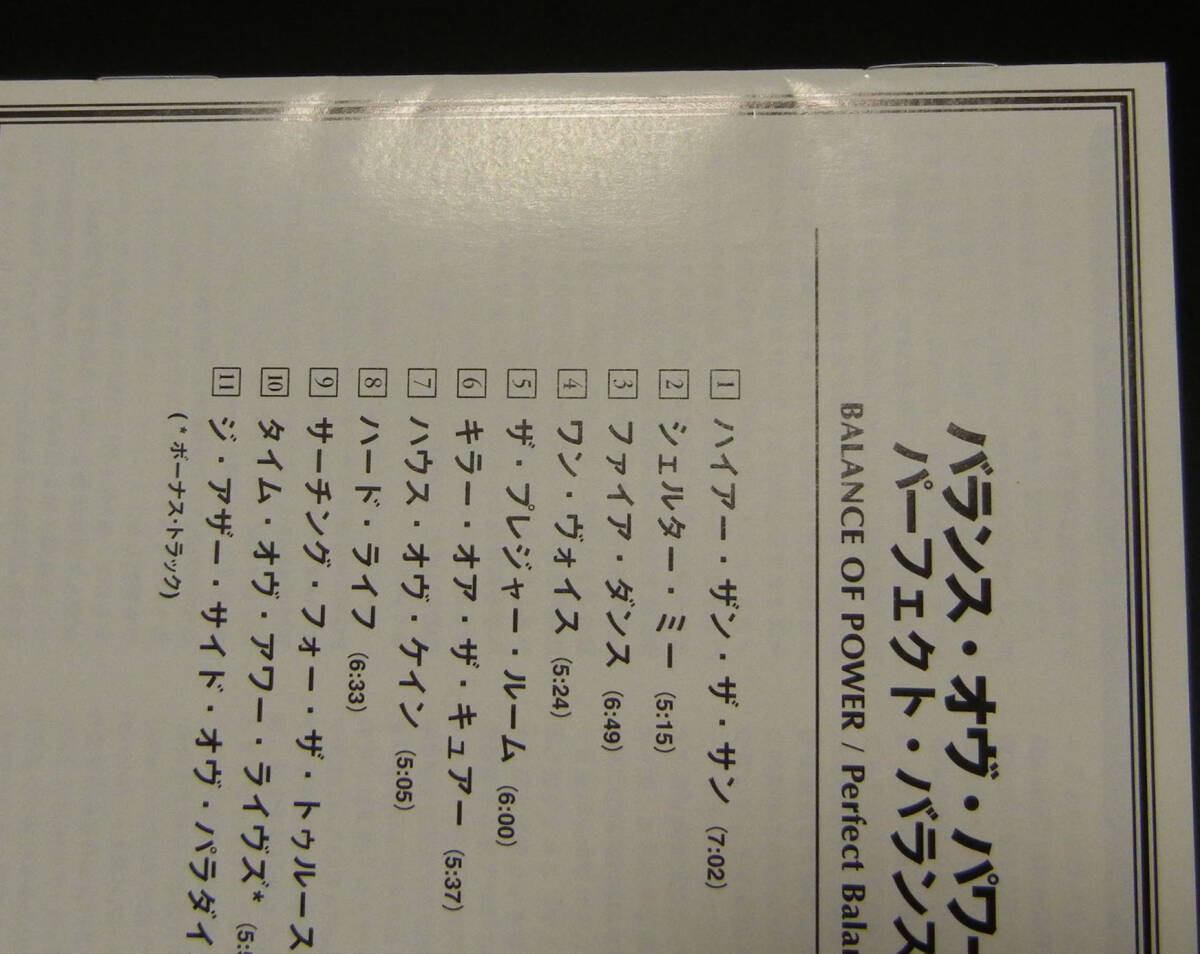 バランス・オヴ・パワー
パーフェクト・バランス
BALANCE OF POWER / Perfect
1 ハイアー・ザン・ザ・サン (7:02)
2 シェルター・ミー (5:15)
3 ファイア・ダンス (6:49)
4 ワン・ヴォイス (5:24)
5 ザ・プレジャー・ルーム (6:00)
6 キラー・オア・ザ・キュアー (5:37)
7 ハウス・オヴ・ケイン (5:05)
8 ハード・ライフ (6:33)
9 サーチング・フォー・ザ・トゥルース
10 タイム・オヴ・アワー・ライヴズ*
11 ジ・アザー・サイド・オヴ・パラダイ
(*ボーナス・トラック)